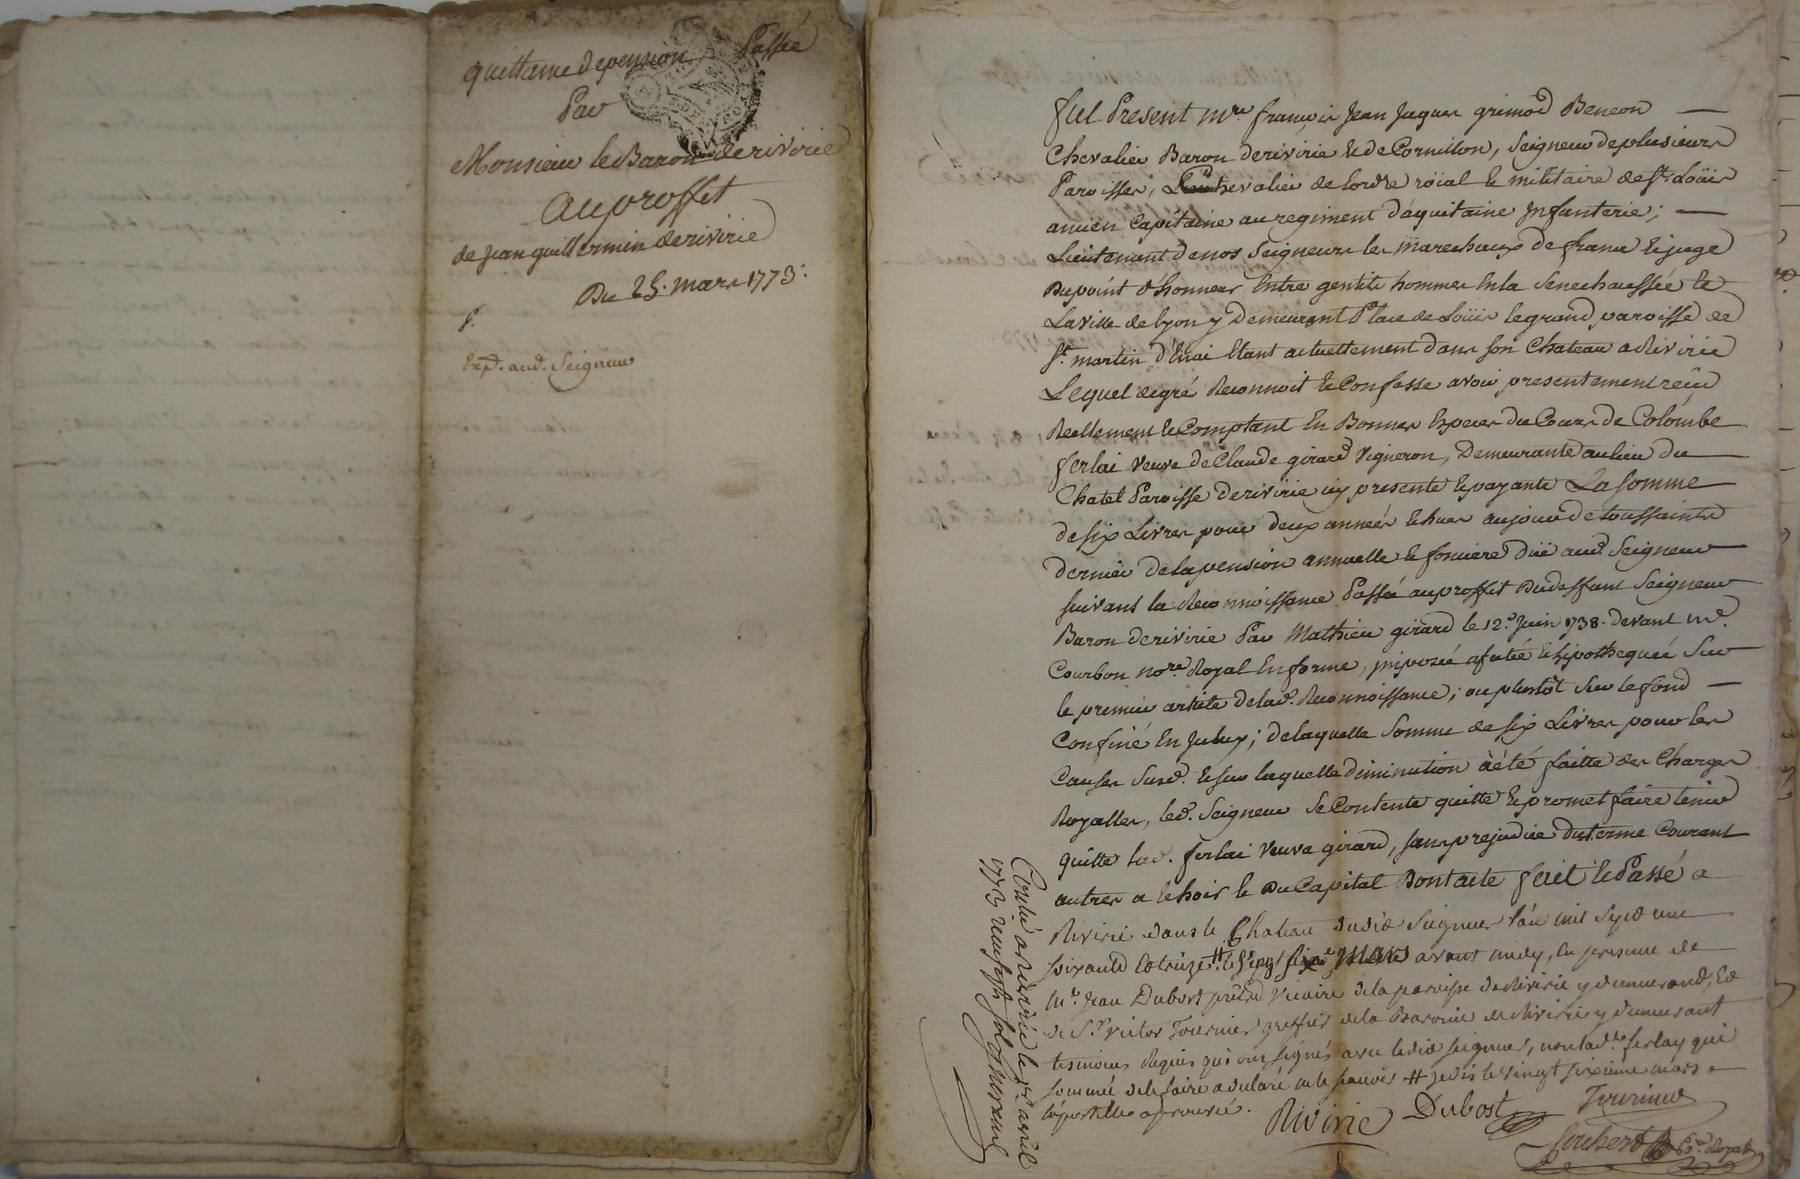 quittance de pension Passée
Par
Monsieur le Baron de rivirie
Au proffit
de Jean guillermin de rivirie
Du 25. Mars 1773.
Exp.d aud. Seigneur
fut Present mre françois Jean Jaques grimod Beneon
Chevalier Baron de rivirie et de Cornillon, Seigneur de plusieurs
Paroisses, Chevalier de lordre roïal et militaire de st Loüis
ancien Capitaine au regiment d'aquitaine Jnfanterie;
Lieutenant de nos Seigneurs les marechaux de france et juge
Du point d'honneur Entre gentils hommes En la Senechaussée et
La ville de lyon y Demeurant Place de Loüis le grand paroisse de
st. martin d'Enai Etant actuellement dans son Chateau a Rivirie
Lequel de gré Reconnoit et Confesse avoir presentement reçu
Reellement et Comptant En Bonnes Especes du Cours de Colombe
ferlai veuve de Claude girard Vigneron, Demeurante au lieu du
Chatel Paroisse de rivirie icy presente et payante La somme
de six Livres pour deux années Echues au jour de toussaints
dernier de la pension annuelle et fonciere düe aud. Seigneur
suivant la Reconnoissance Passée au proffit Dudeffunt Seigneur
Baron de rivirie Par Mathieu girard le 12.e Juin 1738. devant me.
Courbon nore. Royal En forme, jmposée afectée et hipothequée Sur
le premier article de lad. Reconnoissance; ou plustôt Sur le fond
Confiné En Jcelux; de laquelle Somme de six Livres pour les
Causes Susd. et sur laquelle diminution à été faitte des Charges
Royalles, led. Seigneur Se Contente quitte et promet faire tenir
quitte lad. ferlai veuve girard, sans prejudice du terme Courant
autres a Echoir et Du Capital Dont acte fait et Passé a
Rivirie dans le Chateau dudit Seigneur l'an mil sept cent
soixante et treize # le Vingt six.e Mars avant midy, en presence de
Mr. Jean Dubost prêtre Vicaire de la paroisse de Rivirie y demeurant, Et
de Sr. Victor Tournier greffier de la Baronie de Rivirie y demeurant
temoins Requis qui ont signés avec ledit seigneur, non lad.te ferlay qui
sommée de le faire a declaré ne le sçavoir # je dis le vingt sixieme mars
Rivirie Dubost Tournier
Controlé a Rivirie le avril
1773 Reçu sept sols